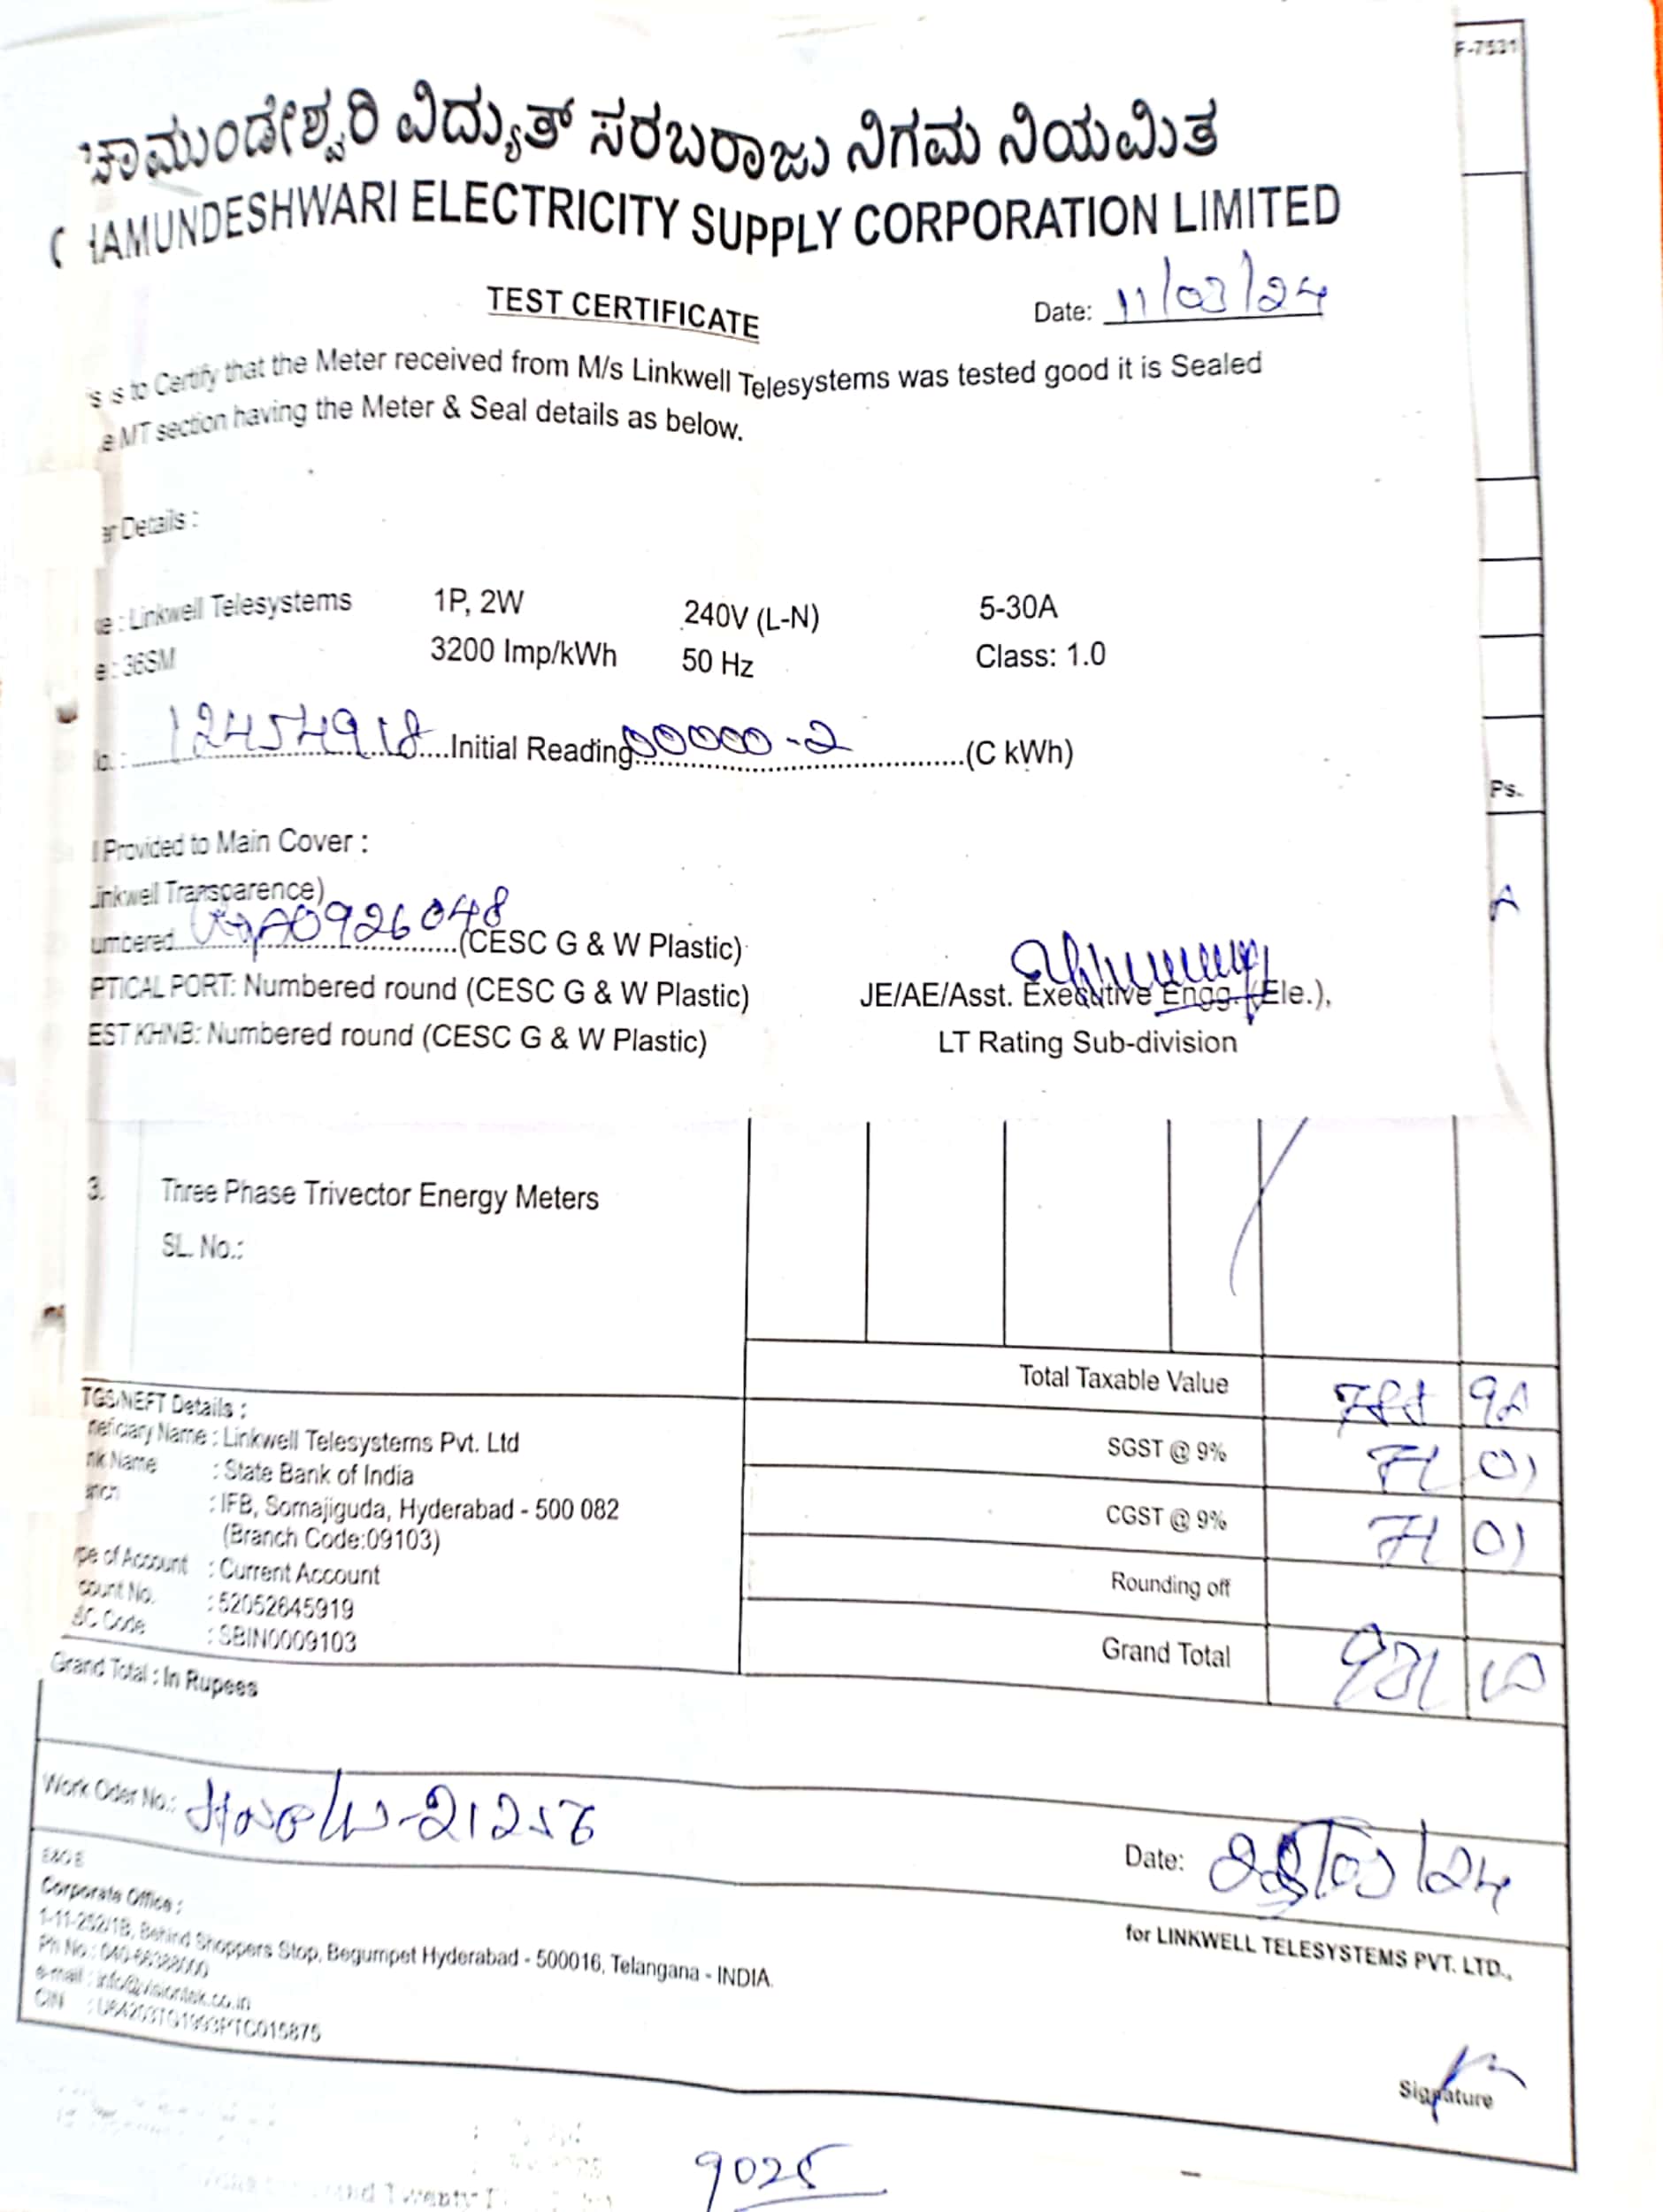 F-7531
ಚಾಮುಂಡೇಶ್ವರಿ ವಿದ್ಯುತ್ ಸರಬರಾಜು ನಿಗಮ ನಿಯಮಿತ
HAMUNDESHWARI ELECTRICITY SUPPLY CORPORATION LIMITED
TEST CERTIFICATE
Date: 11/03/24
s is to Certify that the Meter received from M/s Linkwell Telesystems was tested good it is Sealed
e MT section having the Meter & Seal details as below.
er Details :
ke : Linkwell Telesystems 1P, 2W 240V (L-N) 5-30A
e : 36SM 3200 Imp/kWh 50 Hz Class: 1.0
lo. : 12454918 Initial Reading 00000-2 (C kWh)
Ps.
l Provided to Main Cover :
inkwell Transparence)
umbered 0926048 (CESC G & W Plastic)
PTICAL PORT: Numbered round (CESC G & W Plastic) JE/AE/Asst. Executive Engg. (Ele.),
EST KHNB: Numbered round (CESC G & W Plastic) LT Rating Sub-division
3. Three Phase Trivector Energy Meters
SL. No.:
Total Taxable Value
SGST @ 9% 71 01
CGST @ 9% 71 01
Rounding off
Grand Total 931
TGS/NEFT Details :
neficiary Name : Linkwell Telesystems Pvt. Ltd
nk Name : State Bank of India
anch : IFB, Somajiguda, Hyderabad - 500 082
(Branch Code:09103)
ype of Account : Current Account
count No. : 52052645919
SC Code : SBIN0009103
Grand Total : In Rupees
Work Oder No.: 21256
Date: 28/03/24
E&O E
for LINKWELL TELESYSTEMS PVT. LTD.,
Corporate Office :
1-11-252/1B, Behind Shoppers Stop, Begumpet Hyderabad - 500016, Telangana - INDIA.
Ph No : 040-66388000
e-mail : info@visiontek.co.in
CIN : U64203TG1993PTC015875
Signature
9025